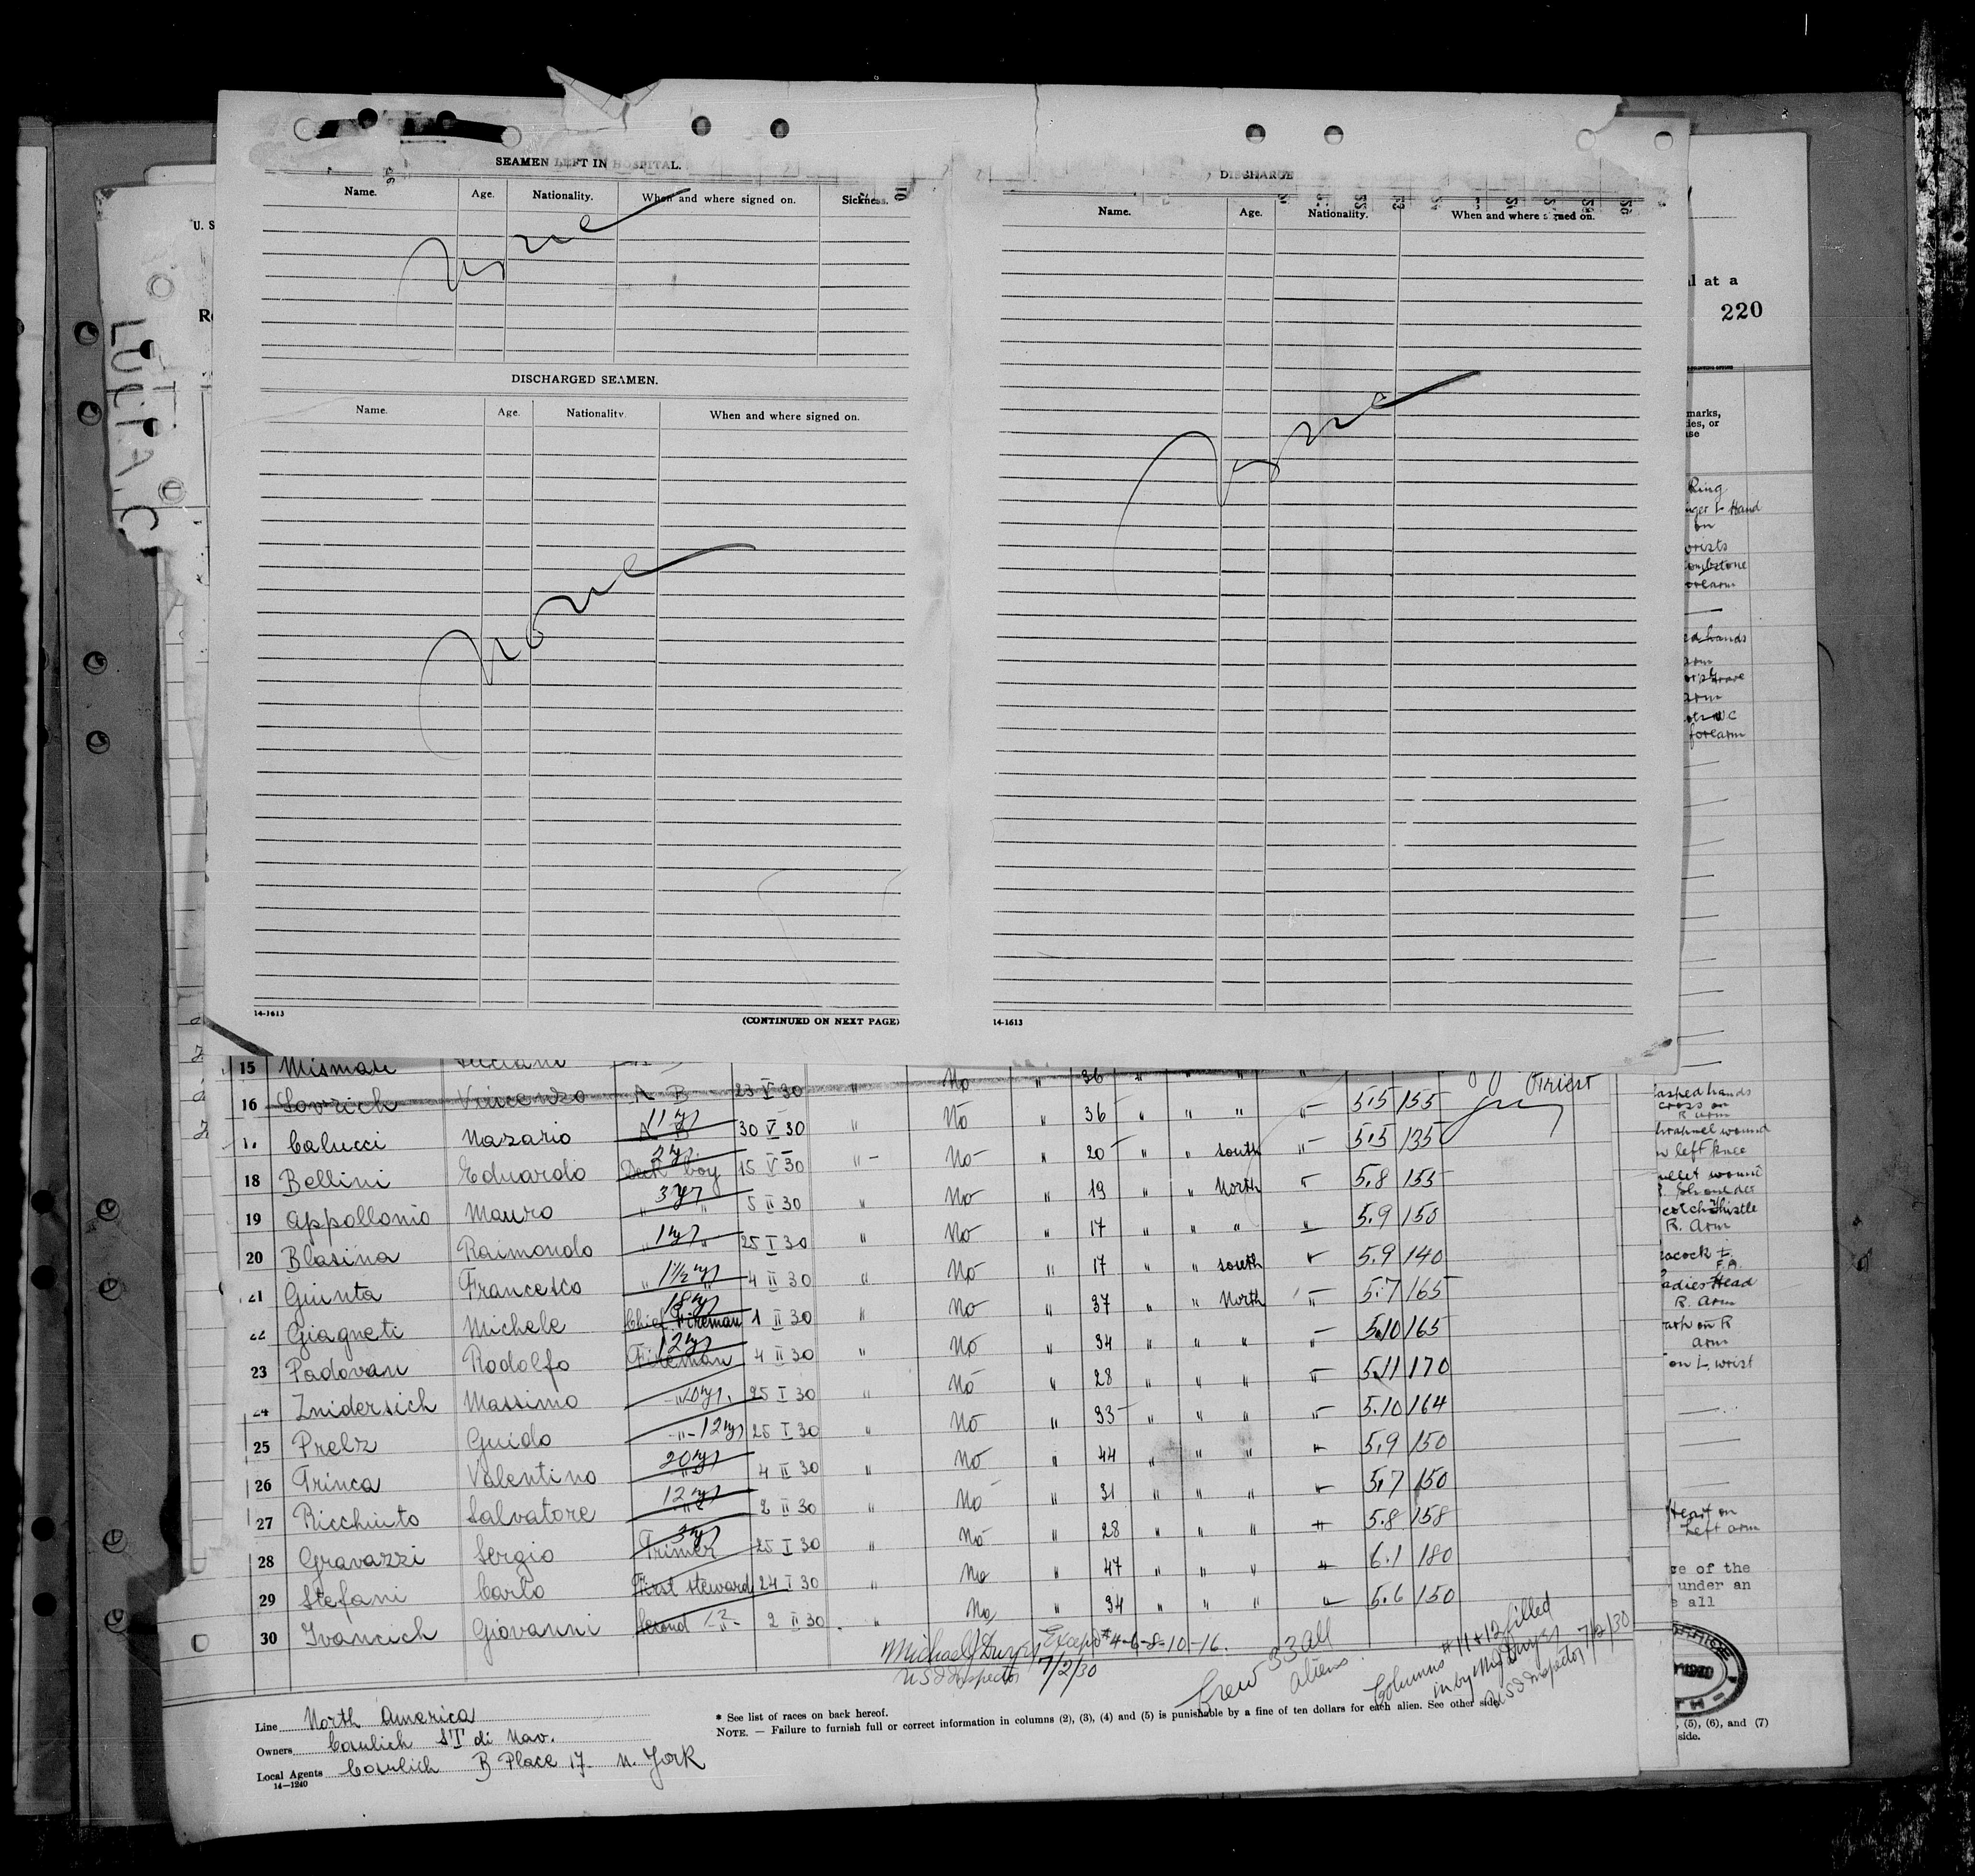 SEAMEN LEFT IN HOSPITAL.
Name. Age. Nationality. When and where signed on. Sickness.
None
DISCHARGED SEAMEN.
Name. Age. Nationality. When and where signed on.
None
14-1613 (CONTINUED ON NEXT PAGE)
DISCHARGE
Name. Age. Nationality. When and where signed on.
None
14-1613
U. S
LUCIA.C
al at a
220
marks,
Ring
Hand
on
wrists
forearm
hands
arm
arm
forearm
15 Mismas Luciani No " 36 " " " "
16 Lovrich Vincenzo A B 23 V 30 " No " 36 " " " " 5.5 155 Triest
Calucci Nazario A B 11 yrs 30 V 30 " No " 20 " " South " 5.5 135
18 Bellini Eduardo Deck boy 2 yrs 15 V 30 " No " 19 " " North " 5.8 155
19 Appollonio Mauro " " 3 yrs 5 II 30 " No " 17 " " " " 5.9 150
20 Blasina Raimondo " " 1 yr 25 I 30 " No " 17 " " South " 5.9 140
21 Giunta Francesco " " 1 1/2 yrs 4 II 30 " No " 37 " " North " 5.7 165
22 Giagneti Michele Chief Fireman 18 yrs 1 II 30 " No " 34 " " " " 5.10 165
23 Padovan Rodolfo Fireman 12 yrs 4 II 30 " No " 28 " " " " 5.11 170
24 Znidersich Massimo " 10 yrs. 25 I 30 " No " 33 " " " " 5.10 164
25 Prelz Guido " 12 yrs 25 I 30 " No " 44 " " " " 5.9 150
26 Trinca Valentino " 20 yrs 4 II 30 " No " 31 " " " " 5.7 150
27 Ricchiuto Salvatore " 12 yrs 2 II 30 " No " 28 " " " " 5.8 158
28 Gravazzi Sergio Trimer 3 yrs 25 I 30 " No " 47 " " " " 6.1 180
29 Stefani Carlo First Steward 24 I 30 " No " 34 " " " " 5.6 150
30 Ivancich Giovanni Second -"- 2 II 30 "
Michael J Dwyer Except # 4-6-8-10-16.
U S I Inspector 7/2/30
Crew 33 all
aliens.
Columns #11+12 filled
in by M J Dwyer
U S I Inspector 7/2/30
Line North America
Owners Cosulich ST di Nav.
Local Agents Cosulich B Place 17 N. York
14-1240
* See list of races on back hereof.
NOTE. — Failure to furnish full or correct information in columns (2), (3), (4) and (5) is punishable by a fine of ten dollars for each alien. See other side.
clasped hands
cross on
R. arm
shrapnel wound
left knee
bullet wound
R. Shoulder
Scotch Thistle
R. Arm
Peacock
F.A.
Ladies Head
R. Arm
on R
arm
on L. wrist
Heart on
Left arm
of the
under an
all
(5), (6), and (7)
side.